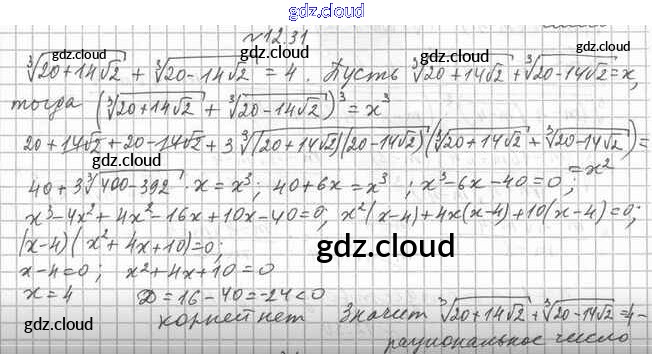 gdz.cloud
№12.31
gdz.cloud gdz.cloud gdz.cloud
∛(20+14√2) + ∛(20-14√2) = 4. Пусть ∛(20+14√2) + ∛(20-14√2) = x,
тогда (∛(20+14√2) + ∛(20-14√2))³ = x³
20+14√2+20-14√2+3∛((20+14√2)(20-14√2))(∛(20+14√2)+∛(20-14√2)) =
gdz.cloud
= x²
40+3∛(400-392) · x = x³; 40+6x = x³; x³-6x-40=0;
x³-4x²+4x²-16x+10x-40=0; x²(x-4)+4x(x-4)+10(x-4)=0;
(x-4)(x²+4x+10)=0;
gdz.cloud
x-4=0; x²+4x+10=0
x=4 D=16-40=-24<0
корней нет Значит ∛(20+14√2)+∛(20-14√2)=4-
рациональное число
gdz.cloud gdz.cloud gdz.cloud